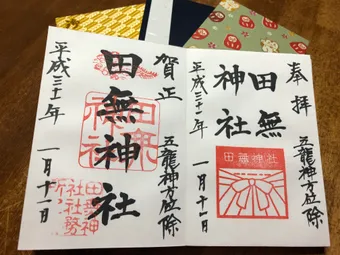 奉拝
五龍神方位除
田無
神社
田無神社
平成三十一年
一月十一日
賀正
五龍神方位除
田無神社
田無
神社
田無神
社社務
所之
平成三十一年
一月十一日